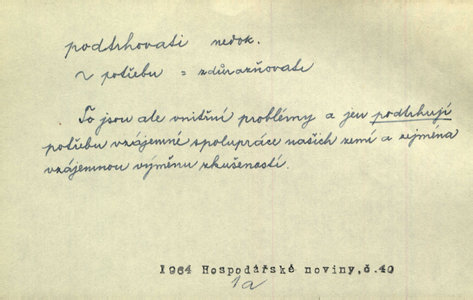 podtrhovati nedok.
~ potřebu = zdůrazňovati
To jsou ale vnitřní problémy a jen podtrhují
potřebu vzájemné spolupráce našich zemí a zejména
vzájemnou výměnu zkušeností.
1964 Hospodářské noviny, č.40
1a